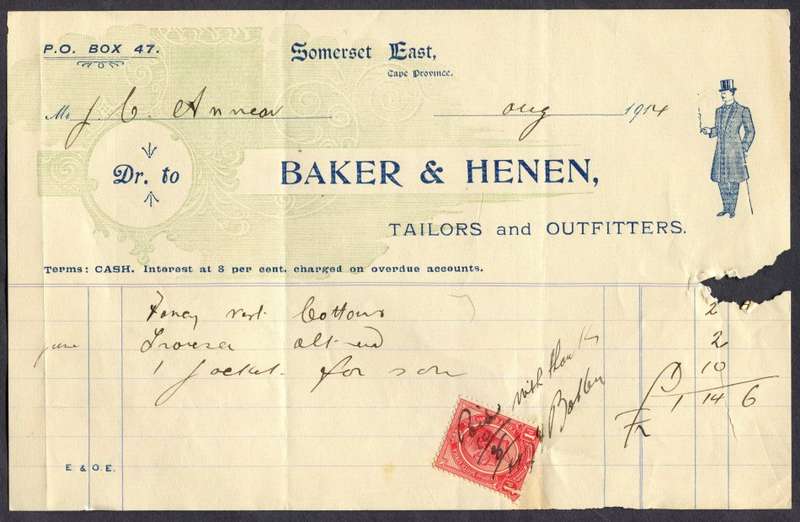 P.O. BOX 47.
Somerset East,
Cape Province.
Mr J. C. Annear Aug 1914
Dr. to
BAKER & HENEN,
TAILORS and OUTFITTERS.
Terms: CASH. Interest at 8 per cent. charged on overdue accounts.
Fancy Vest 2
June Trouser altered 2
1 Jacket for son 10
£ 1 14 6
Paid with thanks
E & O.E.